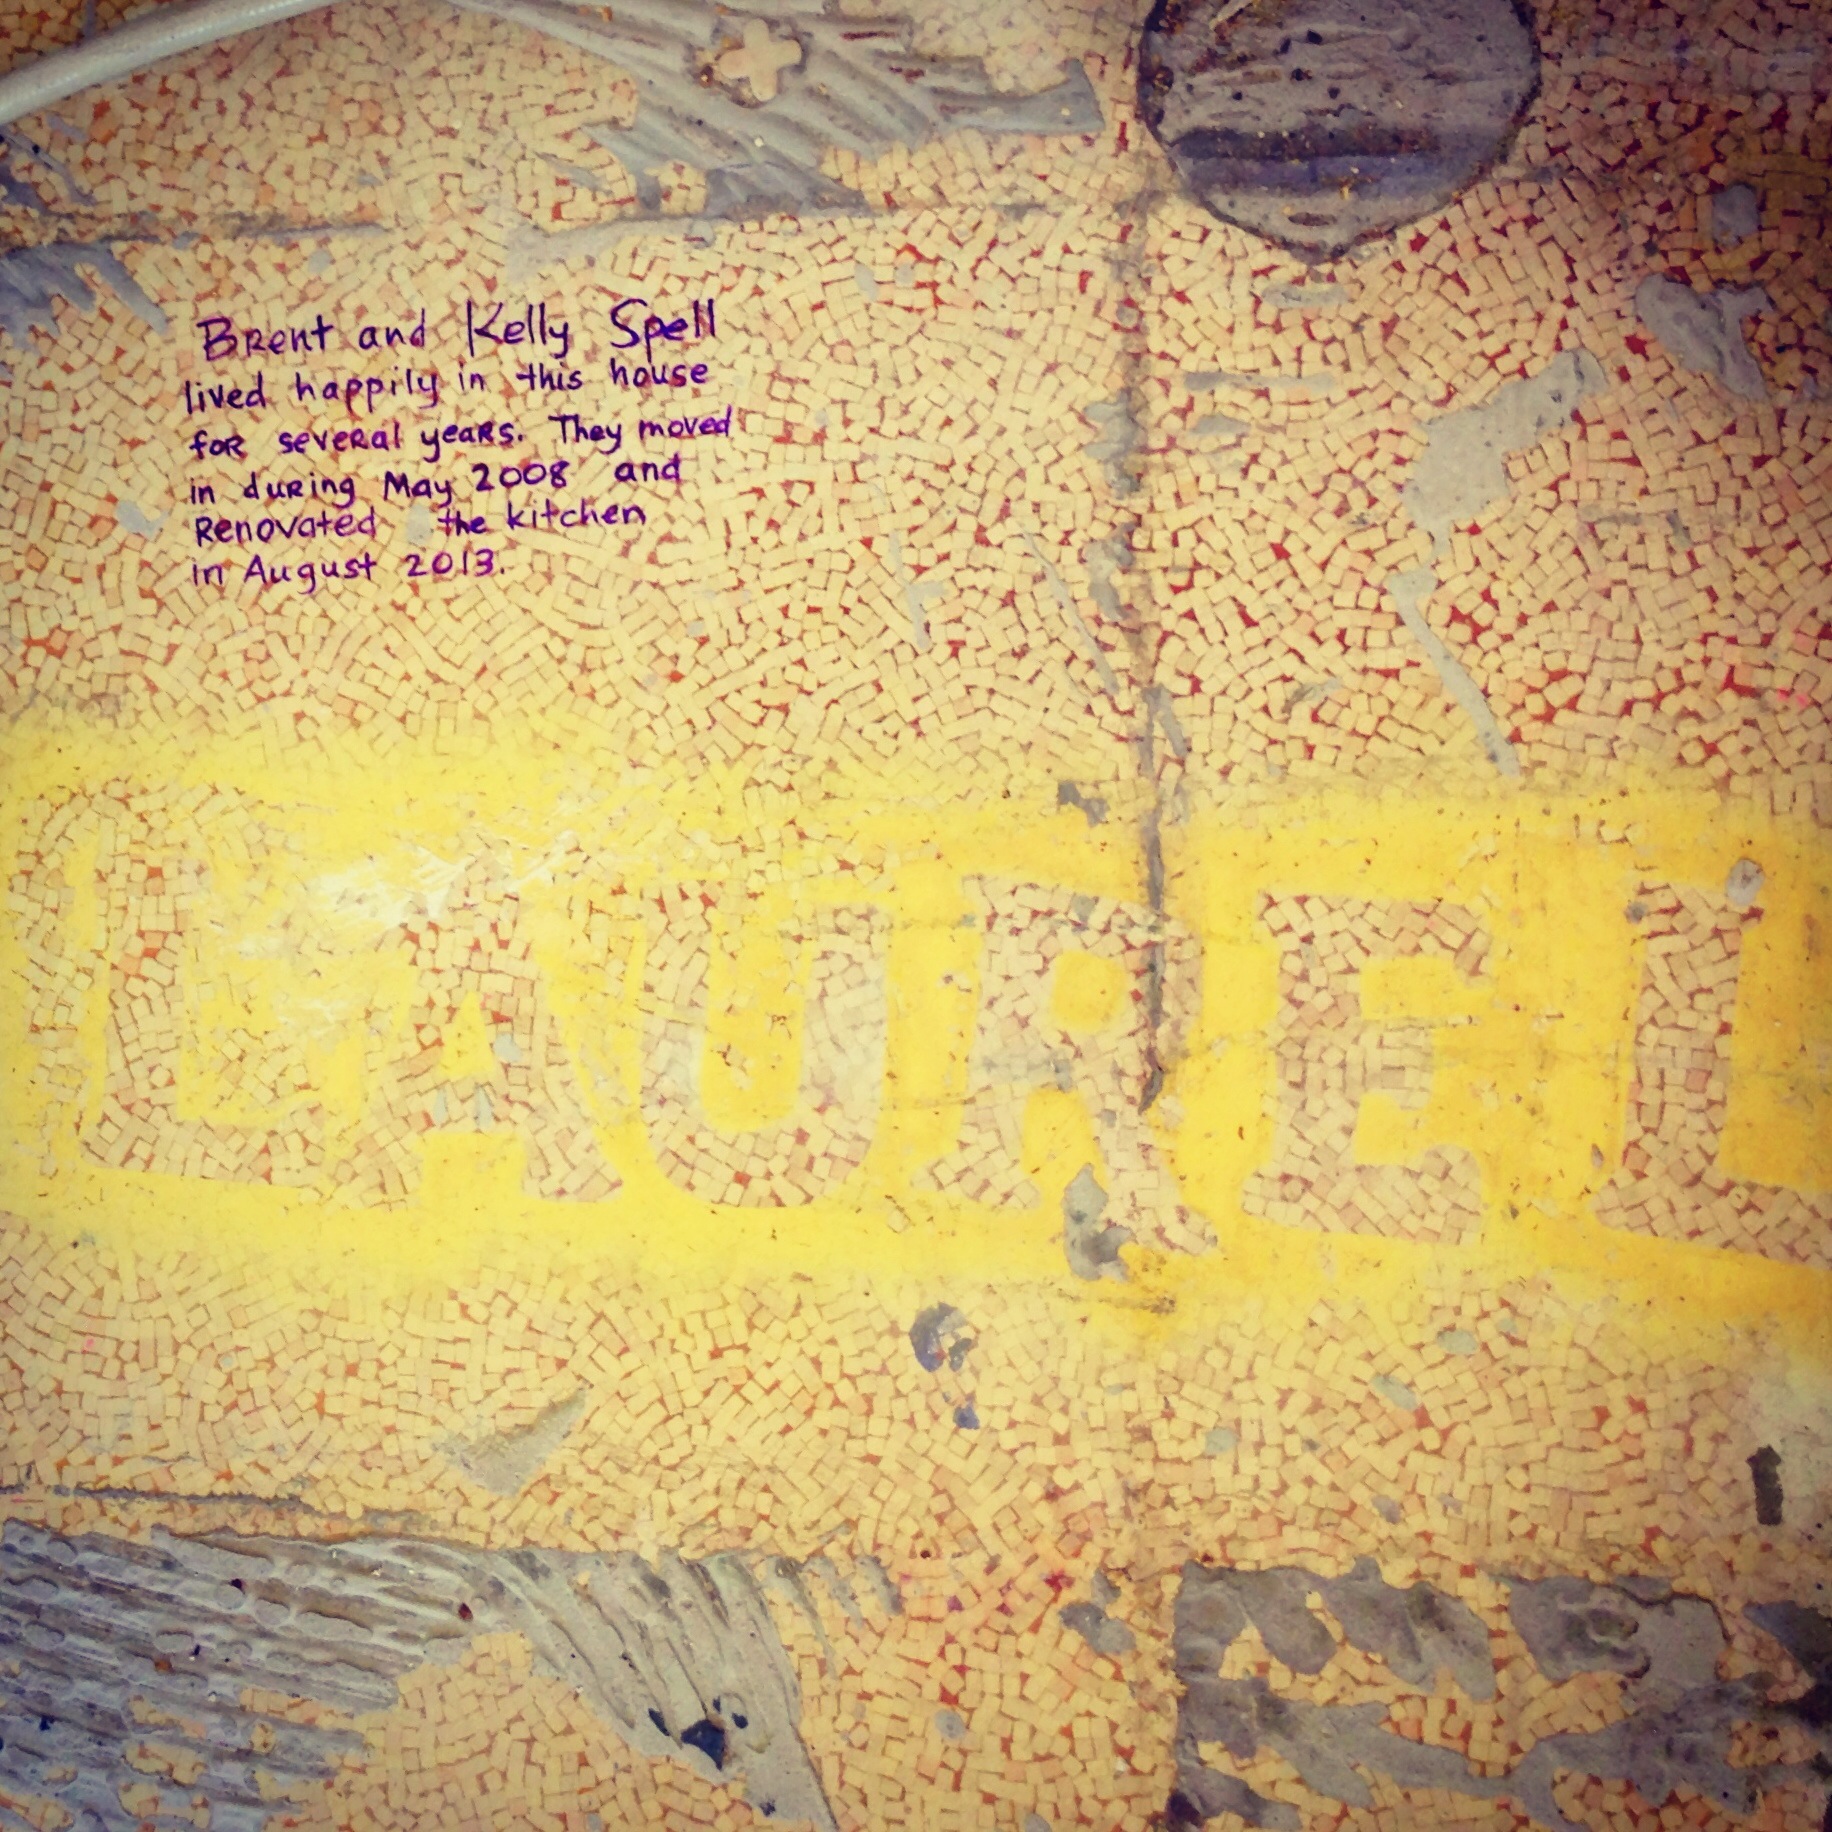 Brent and Kelly Spell
lived happily in this house
for several years. They moved
in during May 2008 and
Renovated the kitchen
in August 2013.
LAUREL